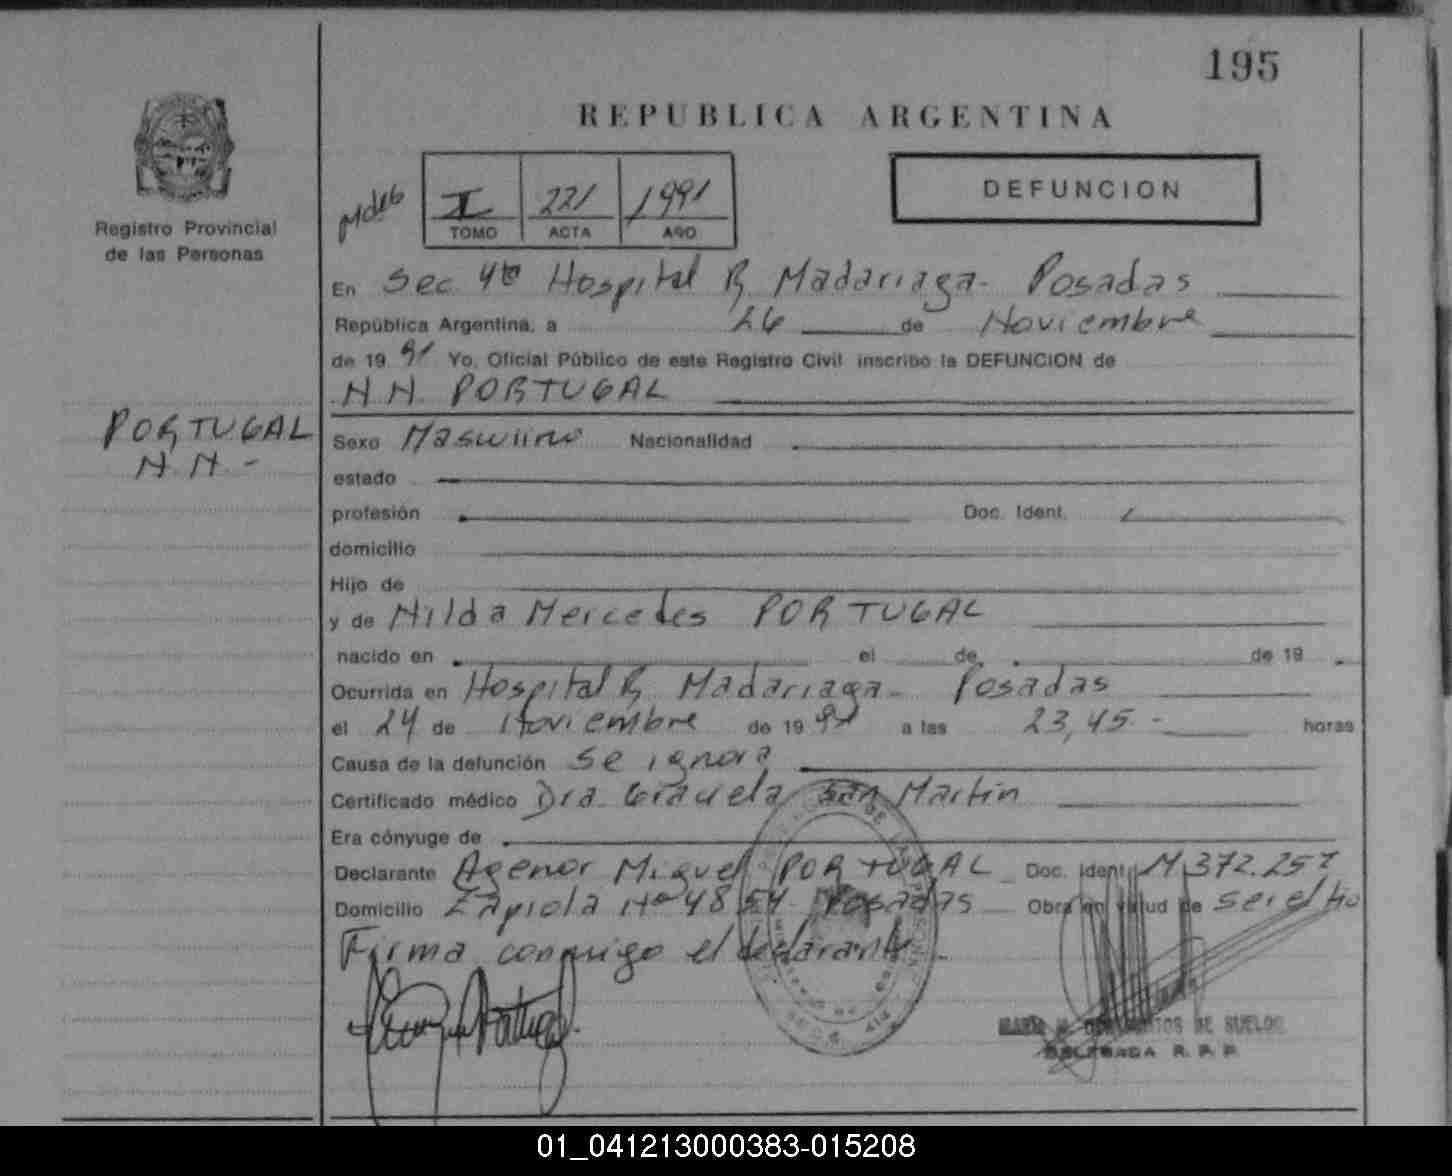 195
REPUBLICA ARGENTINA
DEFUNCION
I 221 1991
TOMO ACTA AÑO
Registro Provincial
de las Personas
En Sec 4ta Hospital R. Madariaga- Posadas
República Argentina, a 26 de Noviembre
de 19 91 Yo, Oficial Público de este Registro Civil inscribo la DEFUNCION de
N.N. PORTUGAL
PORTUGAL
N.N.-
Sexo Masculino Nacionalidad
estado
profesión Doc. Ident.
domicilio
Hijo de
y de Nilda Mercedes PORTUGAL
nacido en el de de 19
Ocurrida en Hospital R. Madariaga- Posadas
el 24 de Noviembre de 19 91 a las 23,45.- horas
Causa de la defunción se ignora
Certificado médico Dra. Graciela San Martin
Era cónyuge de
Declarante Agenor Miguel PORTUGAL Doc. Ident. M 372.257
Domicilio Zapiola Nº 4854 Posadas Obra en virtud de ser el tio
Firma conmigo el declarante.
DE SUELDO
DELEGADA R. P. P.
01_041213000383-015208